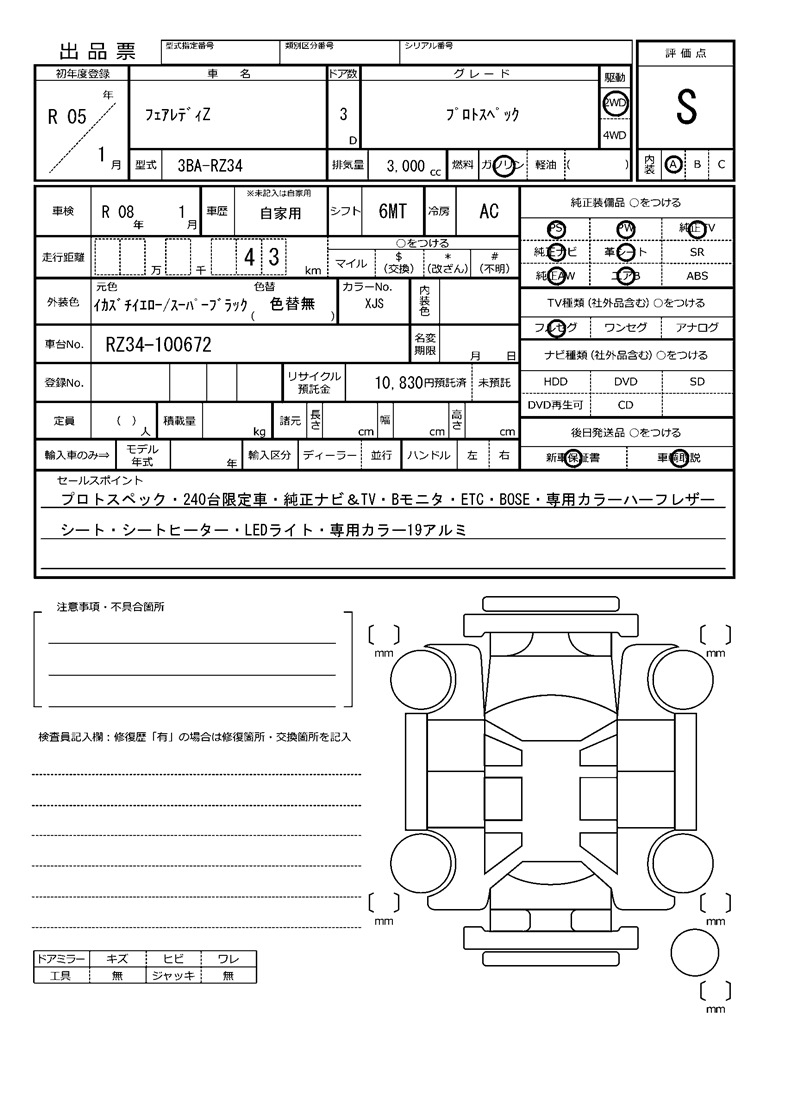 出品票
型式指定番号 類別区分番号 シリアル番号
評価点
初年度登録 車名 ドア数 グレード 駆動
R 05 年 1 月
フェアレディZ
3 D
プロトスペック
2WD
4WD
S
型式 3BA-RZ34 排気量 3,000 cc 燃料 ガソリン 軽油 ( )
内装 A B C
車検 R 08 年 1 月 車歴 ※未記入は自家用 自家用 シフト 6MT 冷房 AC
純正装備品 ○をつける
PS PW 純正TV
純正ナビ 革シート SR
純正AW エアB ABS
走行距離 万 千 4 3 km
○をつける
マイル $(交換) *(改ざん) #(不明)
外装色 元色 色替 カラーNo. 内装色
イカズチイエロー/スーパーブラック ( 色替無 ) XJS
TV種類(社外品含む)○をつける
フルセグ ワンセグ アナログ
車台No. RZ34-100672 名変期限 月 日
ナビ種類(社外品含む) ○をつける
HDD DVD SD
DVD再生可 CD
登録No. リサイクル預託金 10,830円預託済 未預託
定員 ( ) 人 積載量 kg 諸元 長さ cm 幅 cm 高さ cm
後日発送品 ○をつける
新車保証書 車輌取説
輸入車のみ⇒ モデル年式 年 輸入区分 ディーラー 並行 ハンドル 左 右
セールスポイント
プロトスペック・240台限定車・純正ナビ&TV・Bモニタ・ETC・BOSE・専用カラーハーフレザー
シート・シートヒーター・LEDライト・専用カラー19アルミ
注意事項・不具合箇所
検査員記入欄:修復歴「有」の場合は修復箇所・交換箇所を記入
mm mm
mm mm
mm
ドアミラー キズ ヒビ ワレ
工具 無 ジャッキ 無